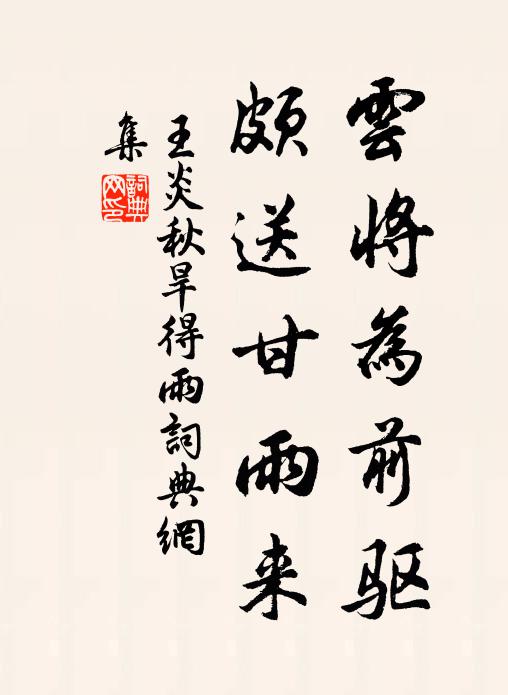 雲將為前驱
頗送甘雨来
王炎秋旱得雨詞典網
集
詞典網印